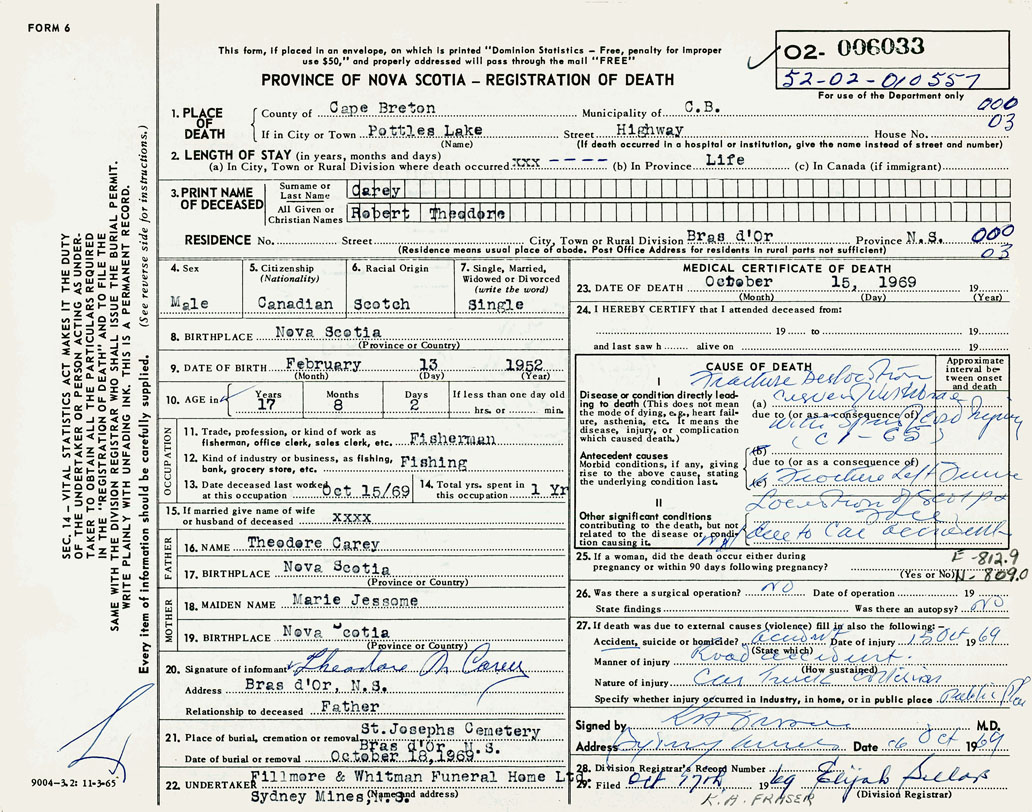 FORM 6
This form, if placed in an envelope, on which is printed "Dominion Statistics – Free, penalty for improper
use $50," and properly addressed will pass through the mail "FREE"
PROVINCE OF NOVA SCOTIA – REGISTRATION OF DEATH
02- 006033
52-02-010557
For use of the Department only
000
03
1. PLACE OF DEATH
County of Cape Breton Municipality of C.B.
If in City or Town Pottles Lake Street Highway House No.
(Name) (If death occurred in a hospital or institution, give the name instead of street and number)
2. LENGTH OF STAY (in years, months and days)
(a) In City, Town or Rural Division where death occurred xxx ---- (b) In Province Life (c) In Canada (if immigrant)
3. PRINT NAME OF DECEASED
Surname or Last Name Carey
All Given or Christian Names Robert Theodore
RESIDENCE No. Street City, Town or Rural Division Bras d'Or Province N.S. 000
(Residence means usual place of abode. Post Office Address for residents in rural parts not sufficient) 03
4. Sex
Male
5. Citizenship
(Nationality)
Canadian
6. Racial Origin
Scotch
7. Single, Married,
Widowed or Divorced
(write the word)
Single
8. BIRTHPLACE Nova Scotia
(Province or Country)
9. DATE OF BIRTH February 13 1952
(Month) (Day) (Year)
10. AGE in
Years 17
Months 8
Days 2
If less than one day old
hrs. or min.
OCCUPATION
11. Trade, profession, or kind of work as
fisherman, office clerk, sales clerk, etc. Fisherman
12. Kind of industry or business, as fishing,
bank, grocery store, etc. Fishing
13. Date deceased last worked
at this occupation Oct 15/69
14. Total yrs. spent in
this occupation 1 Yr
15. If married give name of wife
or husband of deceased xxxx
FATHER
16. NAME Theodore Carey
17. BIRTHPLACE Nova Scotia
(Province or Country)
MOTHER
18. MAIDEN NAME Marie Jessome
19. BIRTHPLACE Nova Scotia
(Province or Country)
20. Signature of informant Theodore M Carey
Address Bras d'Or, N.S.
Relationship to deceased Father
21. Place of burial, cremation or removal St.Josephs Cemetery
Bras d'Or, N.S.
Date of burial or removal October 18,1969
22. UNDERTAKER Fillmore & Whitman Funeral Home Ltd.
Sydney Mines, N.S.
(Name and address)
MEDICAL CERTIFICATE OF DEATH
23. DATE OF DEATH October 15, 1969 19
(Month) (Day) (Year)
24. I HEREBY CERTIFY that I attended deceased from:
19 to 19
and last saw h alive on 19
CAUSE OF DEATH
Approximate
interval be-
tween onset
and death
I
Disease or condition directly lead-
ing to death (This does not mean
the mode of dying, e.g., heart fail-
ure, asthenia, etc. It means the
disease, injury, or complication
which caused death.)
Fracture Dislocation
(a)
due to (or as a consequence of)
with Spinal Cord Injury
Antecedent causes
Morbid conditions, if any, giving
rise to the above cause, stating
the underlying condition last.
(b)
due to (or as a consequence of)
(c) Fracture Left Femur
II
Other significant conditions
contributing to the death, but not
related to the disease or condi-
tion causing it.
due to Car accident
25. If a woman, did the death occur either during
pregnancy or within 90 days following pregnancy?
(Yes or No)
E -812.9
N- 809.0
26. Was there a surgical operation? NO Date of operation 19
State findings Was there an autopsy? NO
27. If death was due to external causes (violence) fill in also the following:–
Accident, suicide or homicide? Accident Date of injury 15 Oct 1969
(State which)
Manner of injury Road accident.
(How sustained)
Nature of injury Car Truck Collision
Specify whether injury occurred in Industry, in home, or in public place Public Place
Signed by M.D.
Address Sydney Mines Date Oct 1969
28. Division Registrar's Record Number
29. Filed Oct 17th, 1969 Elijah
(Division Registrar)
K. A. FRASER
SEC. 14 – VITAL STATISTICS ACT MAKES IT THE DUTY
OF THE UNDERTAKER OR PERSON ACTING AS UNDER-
TAKER TO OBTAIN ALL THE PARTICULARS REQUIRED
IN THE "REGISTRATION OF DEATH" AND TO FILE THE
SAME WITH THE DIVISION REGISTRAR WHO SHALL ISSUE THE BURIAL PERMIT.
WRITE PLAINLY WITH UNFADING INK. THIS IS A PERMANENT RECORD.
Every item of information should be carefully supplied. (See reverse side for instructions.)
9004-3.2: 11-3-65